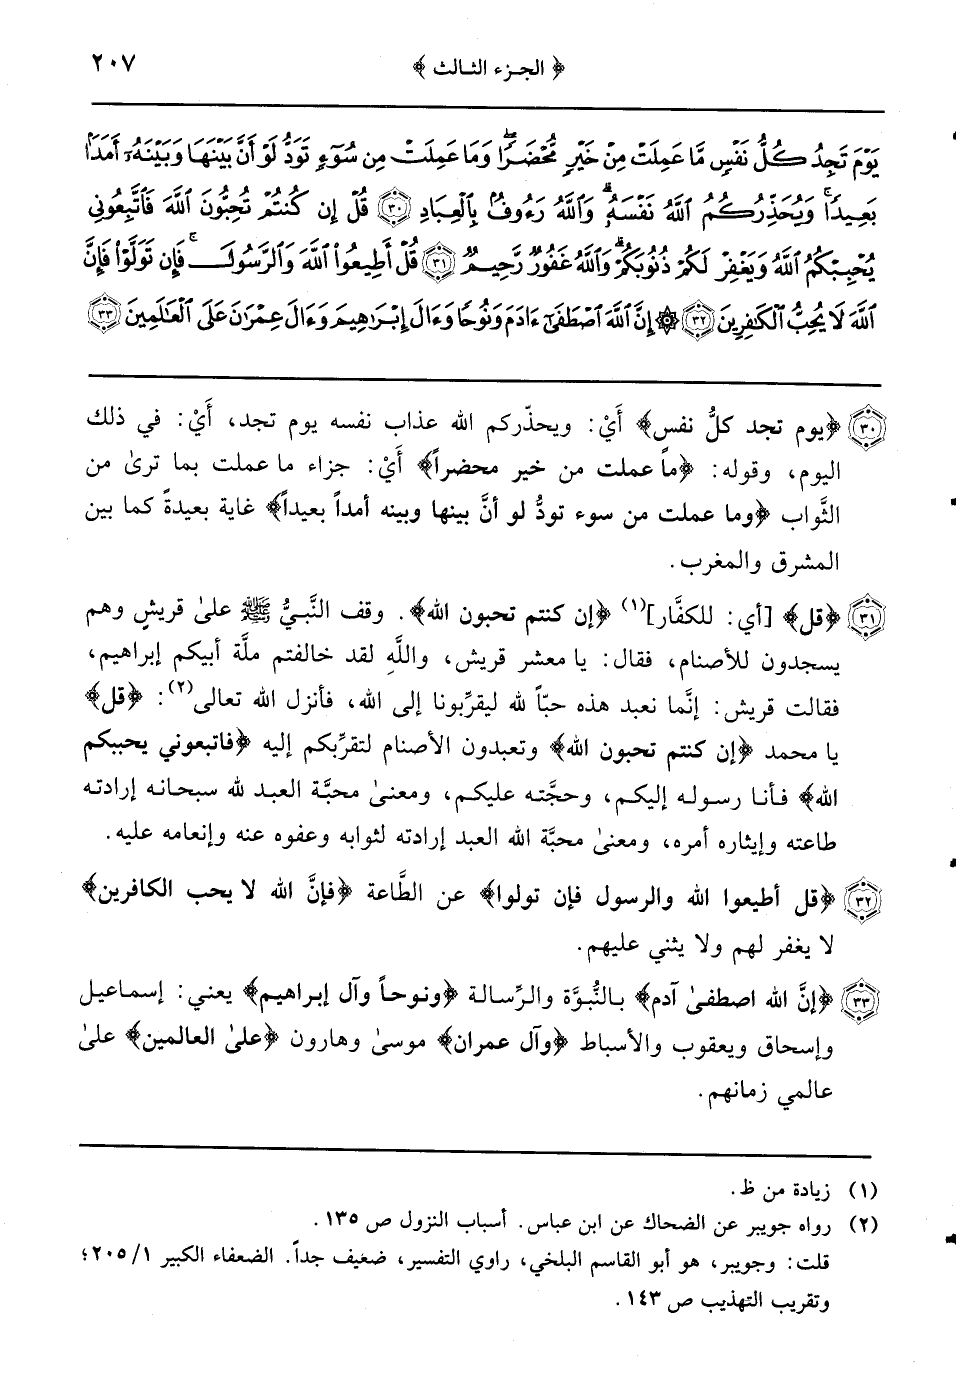 ﴿ الجزء الثالث ﴾ ٢٠٧
يَوْمَ تَجِدُ كُلُّ نَفْسٍ مَّا عَمِلَتْ مِنْ خَيْرٍ مُّحْضَرًا وَمَا عَمِلَتْ مِن سُوٓءٍ تَوَدُّ لَوْ أَنَّ بَيْنَهَا وَبَيْنَهُۥٓ أَمَدًۢا
بَعِيدًا ۗ وَيُحَذِّرُكُمُ ٱللَّهُ نَفْسَهُۥ ۗ وَٱللَّهُ رَءُوفٌۢ بِٱلْعِبَادِ ﴿٣٠﴾ قُلْ إِن كُنتُمْ تُحِبُّونَ ٱللَّهَ فَٱتَّبِعُونِى
يُحْبِبْكُمُ ٱللَّهُ وَيَغْفِرْ لَكُمْ ذُنُوبَكُمْ ۗ وَٱللَّهُ غَفُورٌ رَّحِيمٌ ﴿٣١﴾ قُلْ أَطِيعُوا۟ ٱللَّهَ وَٱلرَّسُولَ ۖ فَإِن تَوَلَّوْا۟ فَإِنَّ
ٱللَّهَ لَا يُحِبُّ ٱلْكَٰفِرِينَ ﴿٣٢﴾ ۞ إِنَّ ٱللَّهَ ٱصْطَفَىٰٓ ءَادَمَ وَنُوحًا وَءَالَ إِبْرَٰهِيمَ وَءَالَ عِمْرَٰنَ عَلَى ٱلْعَٰلَمِينَ ﴿٣٣﴾
﴿٣٠﴾ ﴿يوم تجد كلُّ نفس﴾ أَيْ: ويحذّركم الله عذاب نفسه يوم تجد، أَيْ: في ذلك
اليوم، وقوله: ﴿ماَ عملت من خير محضراً﴾ أَيْ: جزاء ما عملت بما ترىٰ من
الثَّواب ﴿وما عملت من سوء تودُّ لو أنَّ بينها وبينه أمداً بعيداً﴾ غاية بعيدةً كما بين
المشرق والمغرب.
﴿٣١﴾ ﴿قل﴾ [أي: للكفَّار](١) ﴿إن كنتم تحبون الله﴾. وقف النَّبيُّ ﷺ علىٰ قريشٍ وهم
يسجدون للأصنام، فقال: يا معشر قريش، واللَّهِ لقد خالفتم ملَّة أبيكم إبراهيم،
فقالت قريش: إنَّما نعبد هذه حبّاً لله ليقرِّبونا إلى الله، فأنزل الله تعالى(٢): ﴿قل﴾
يا محمد ﴿إن كنتم تحبون الله﴾ وتعبدون الأصنام لتقرِّبكم إليه ﴿فاتبعوني يحببكم
الله﴾ فأنا رسوله إليكم، وحجَّته عليكم، ومعنىٰ محبَّة العبد لله سبحانه إرادته
طاعته وإيثاره أمره، ومعنىٰ محبَّة الله العبد إرادته لثوابه وعفوه عنه وإنعامه عليه.
﴿٣٢﴾ ﴿قل أطيعوا الله والرسول فإن تولوا﴾ عن الطَّاعة ﴿فإنَّ الله لا يحب الكافرين﴾
لا يغفر لهم ولا يثني عليهم.
﴿٣٣﴾ ﴿إنَّ الله اصطفىٰ آدم﴾ بالنُّبوَّة والرِّسالة ﴿ونوحاً وآل إبراهيم﴾ يعني: إسماعيل
وإسحاق ويعقوب والأسباط ﴿وآل عمران﴾ موسىٰ وهارون ﴿علىٰ العالمين﴾ علىٰ
عالمي زمانهم.
(١) زيادة من ظ.
(٢) رواه جويبر عن الضحاك عن ابن عباس. أسباب النزول ص ١٣٥.
قلت: وجويبر، هو أبو القاسم البلخي، راوي التفسير، ضعيف جداً. الضعفاء الكبير ١/٢٠٥؛
وتقريب التهذيب ص ١٤٣.